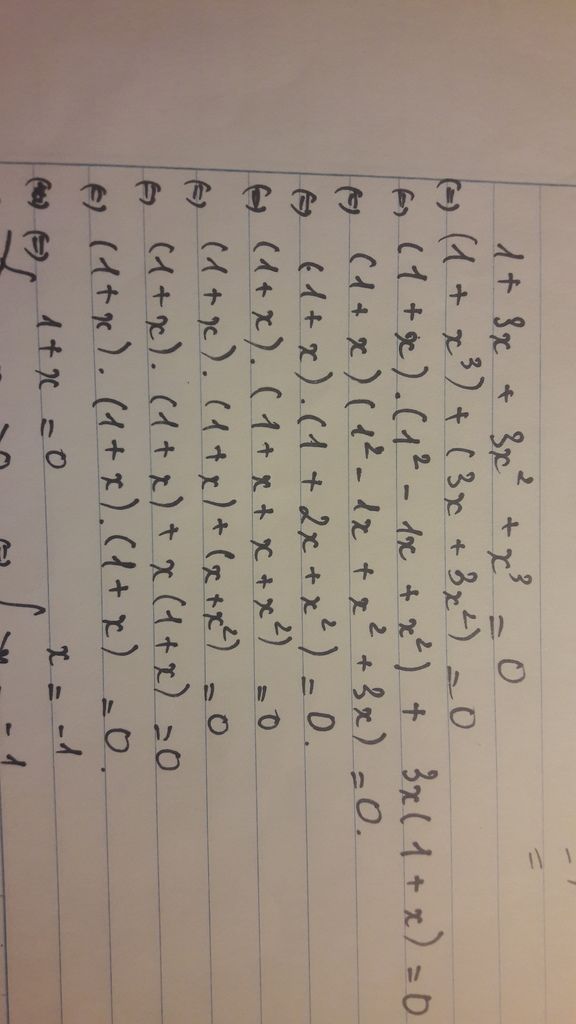 1 + 3x + 3x² + x³ = 0
(=) (1 + x³) + (3x + 3x²) = 0
(=) (1 + x).(1² - 1x + x²) + 3x(1 + x) = 0
(=) (1 + x)(1² - 1x + x² + 3x) = 0.
(=) (1 + x).(1 + 2x + x²) = 0.
(=) (1 + x).(1 + x + x + x²) = 0
(=) (1 + x).(1 + x) + (x + x²) = 0
(=) (1 + x).(1 + x) + x(1 + x) = 0
(=) (1 + x).(1 + x).(1 + x) = 0.
(=) 1 + x = 0 x = -1